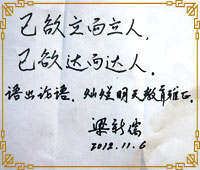 己欲立而立人，
己欲达而达人。
语出论语。灿烂明天教育雅正。
梁新儒
2012.11.6